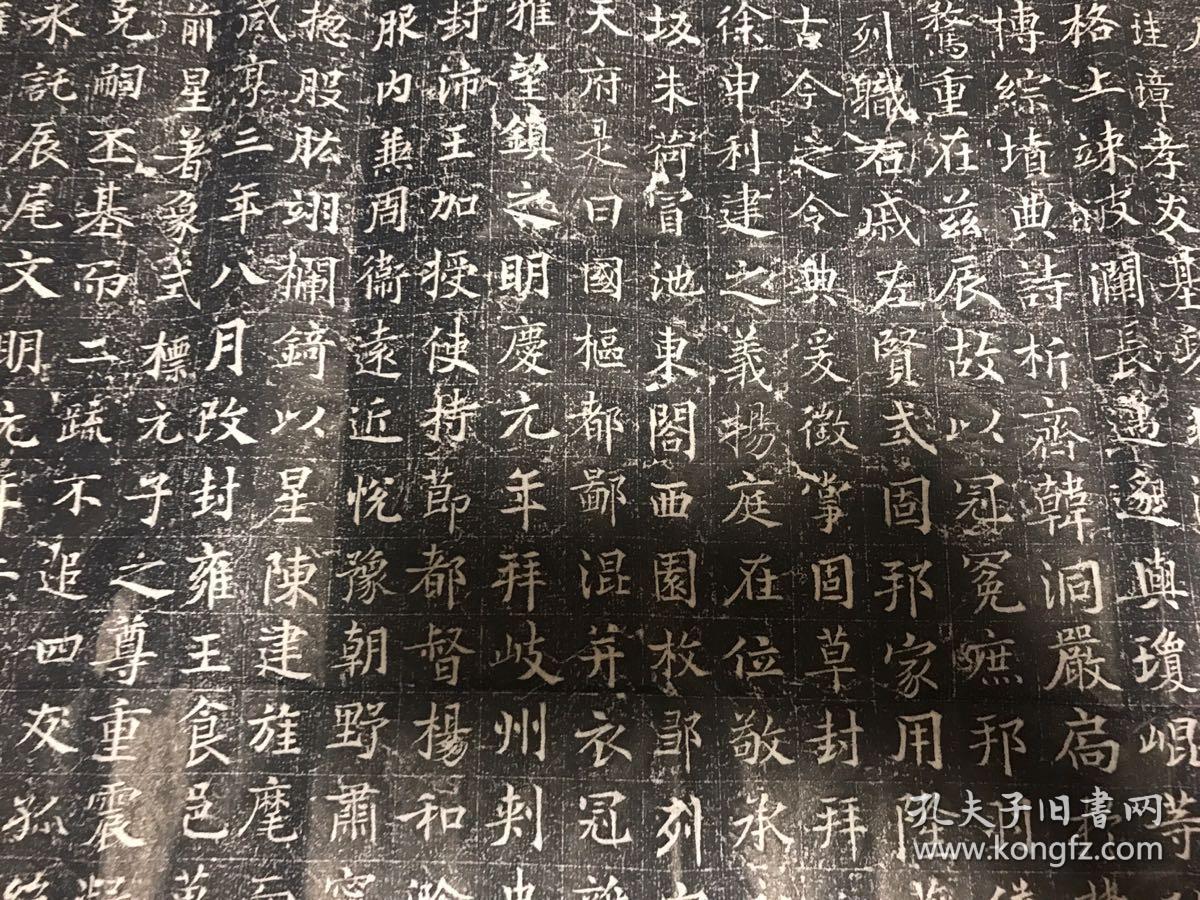 珪璋孝友基
邈與瓊崐等
格上竦波瀾長邁
博綜墳典詩析齊韓洞嚴扃
騖重在兹辰故以冠冕庶邦
列職右戚左賢式固邦家用
古今之令典爰徵掌固草封拜
徐申利建之義揚庭在位敬承
坂朱荷冒池東閣西園枚鄒列
天府是曰國樞都鄙混并衣冠
雅望鎮之明慶元年拜岐州刺
封沛王加授使持莭都督揚和
服内兼周衞遠近悅豫朝野肅
揔股肱翊欄錡以星陳建旌麾
咸亨三年八月改封雍王食邑
前星著象式標元子之尊重震
克嗣丕基而二疏不追四友孤
永託辰尾文明元年
孔夫子旧书网
www.kongfz.com